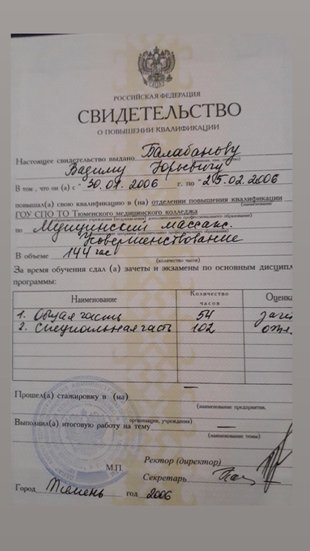 РОССИЙСКАЯ ФЕДЕРАЦИЯ
СВИДЕТЕЛЬСТВО
О ПОВЫШЕНИИ КВАЛИФИКАЦИИ
Настоящее свидетельство выдано Балабанову
Вадиму Юрьевичу
В том, что он (а) с «30.01 2006 г. по «25.02.2006
повышал(а) свою квалификацию в (на) отделении повышения квалификации
ГОУ СПО ТО Тюменского медицинского колледжа
по Медицинский массаж.
Усовершенствование
В объеме 144 час
(количество часов)
За время обучения сдал (а) зачеты и экзамены по основным дисципл
программы:
Наименование Количество часов Оценка
1. Общая часть 54 заче
2. Специальная часть 102 отл.
Прошел(а) стажировку в (на)
(наименование предприятия,
организации, учреждения)
Выполнил(а) итоговую работу на тему
(наименование темы)
Ректор (директор)
М.П. Секретарь
Город Тюмень год 2006